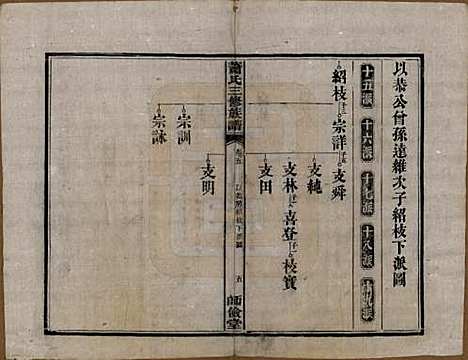 以恭公曾孫遠雜次子紹枝下派圖
十五派 十六派 十七派 十八派 十九派
紹枝 宗洋 支舜
支純
支林 喜登 枝寶
支田
蕭氏三修族譜
卷五
五
師儉堂
支明
宗訓
宗詠